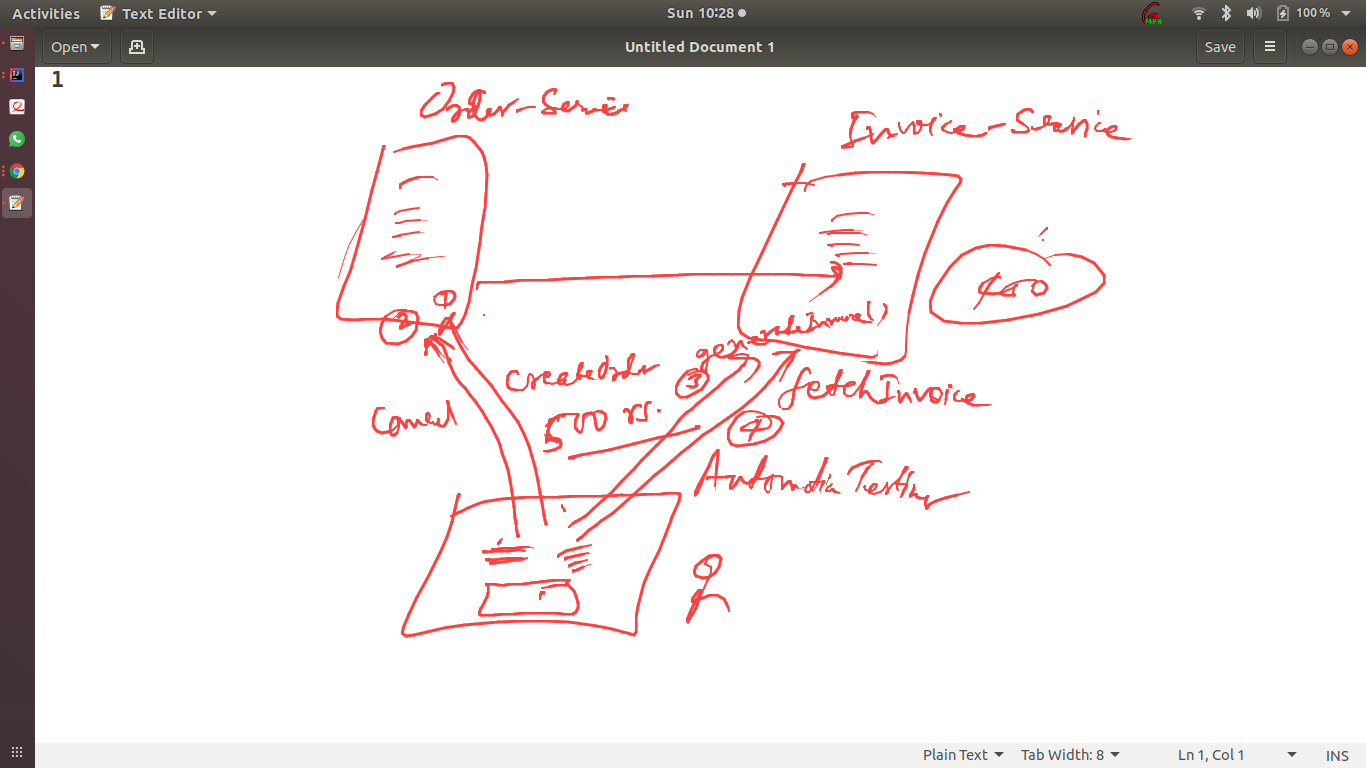 Activities Text Editor Sun 10:28 100 %
Open Untitled Document 1 Save
1
Order-Service
Invoice-Service
1
2
generateInvoice()
CreateOrder
3
fetchInvoice
500 rs.
4
Automation Testing
Plain Text Tab Width: 8 Ln 1, Col 1 INS